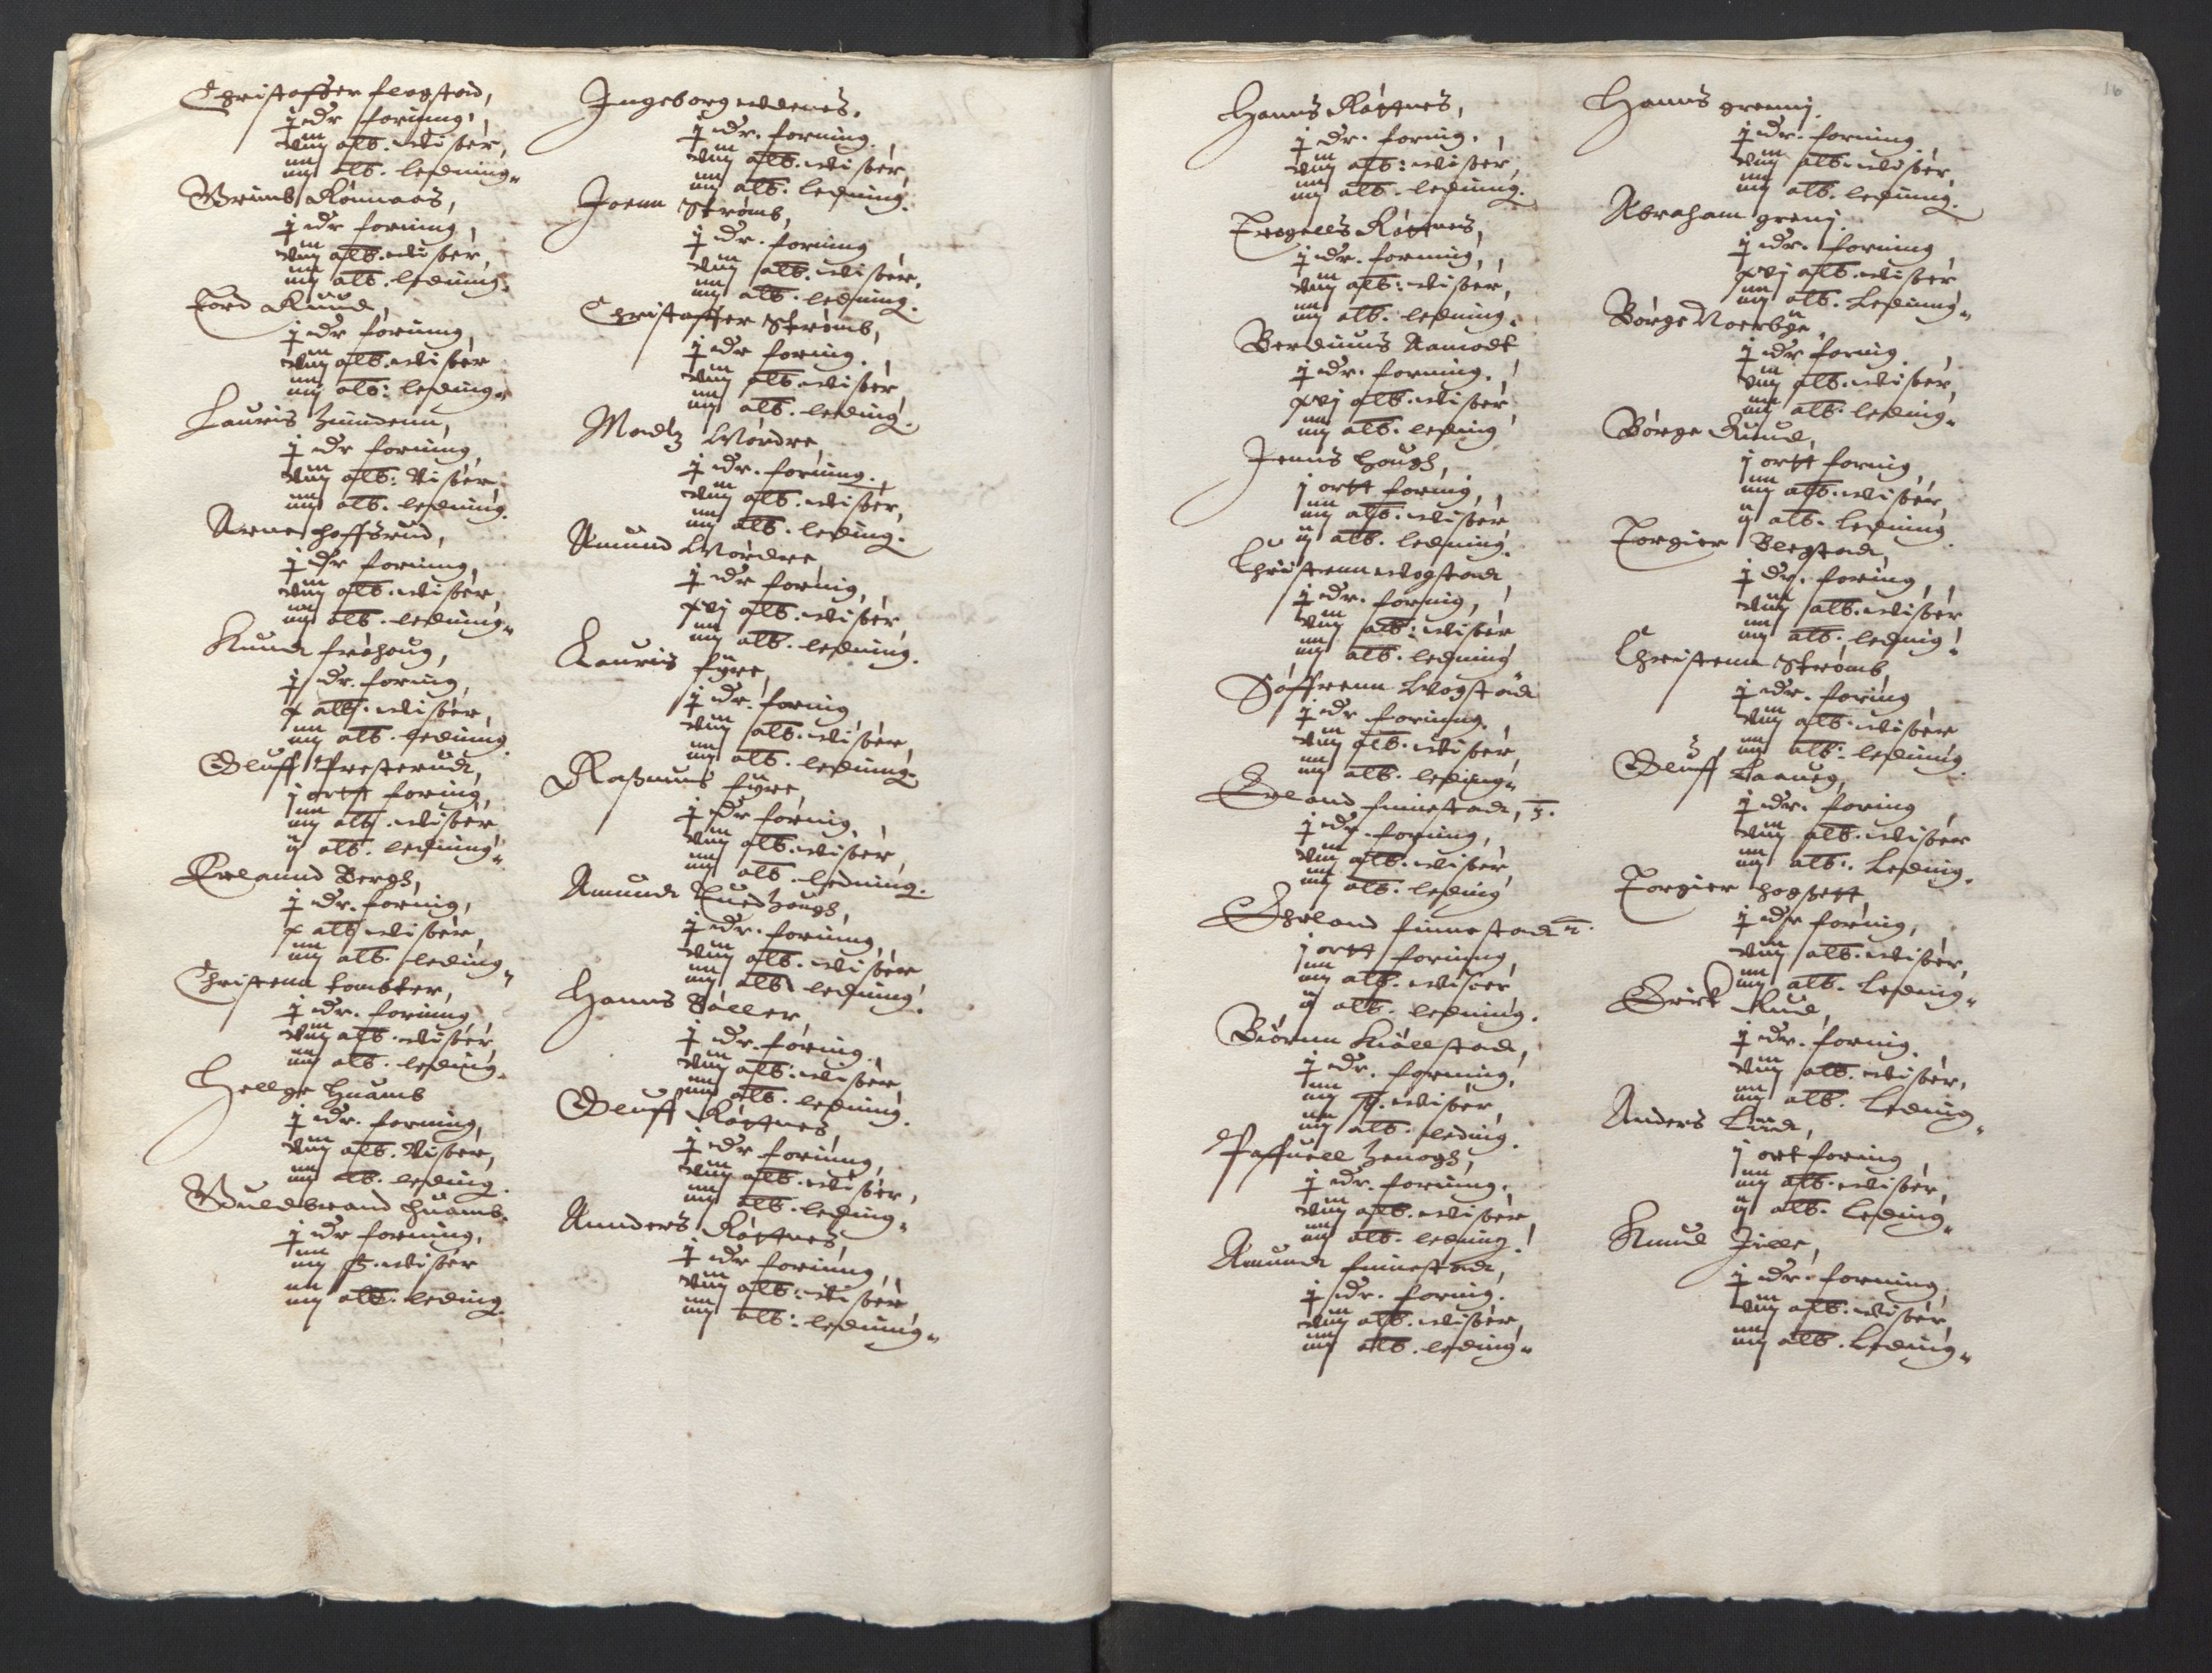 Christoffer flogstad,
j dr forning,
viij alb. visser,
iiij alb. ledning.
Brunb Rønnaas,
j dr forning,
viij alb. visser,
iiij alb. ledning.
Tord Ruud,
j dr forning,
viij alb. visser
iiij alb: leding.
Lauris
j dr forning,
viij alb: visser,
iiij alb. ledning.
Arne hoffsrud,
j dr forning,
viij alb. visser,
iiij alb. ledning.
Knud frøhoug,
j dr. foring,
x alb. visser,
iiij alb. ledning.
Oluff Presterud,
j ortt foring,
iiij alb. visser
ij alb. ledning.
Erlannd Bergh,
j dr. forning,
x alb visser,
iiij alb. leding.
Christenn tombter,
j dr. forning,
viij alb. visser,
iiij alb. leding.
Hellge huamb
j dr. forning,
viij alb. visser,
iiij alb. leding.
Guldbrand huamb.
j dr forning,
iiij ß. visser
iiij alb. leding.
Ingeborg
j dr. forning.
viij alb. visser,
iiij alb. ledning.
Joenn Strømb,
j dr. forning
viij alb. visser,
iiij alb. ledning.
Christoffer Strømb,
j dr foring.
viij alb. visser,
iiij alb. leding.
Madtz Wørdre,
j dr. forning.
viij alb. visser,
iiij alb. leding.
Amund Wørdre,
j dr forning,
xvj alb. visser,
iiij alb. ledning.
Lauris fyre,
j dr. foring
viij alb. visser,
iiij alb. ledning.
Rasmuns fyre,
j dr forning,
viij alb. visser,
iiij alb. ledning.
Amund
j dr. forning,
viij alb. visser
iiij alb. ledning.
Hanns Søller,
j dr. foring.
viij alb: visser
iiij alb. ledning.
Oluff Røttnes,
j dr forning,
viij alb. visser,
iiij alb. leding.
Annders Røttnes,
j dr forning,
viij alb. visser
iiij alb: ledning.
16
Hanns Røttnes,
j dr. forning.
viij alb: visser,
iiij alb. ledning.
Røttnes,
j dr. forning,
viij alb: visser,
iiij alb. ledning.
Aamodt
j dr. forning.
xvj alb. visser
iiij alb. leding
Jenns hough,
j ortt foring,
iiij alb. visser
ij alb. ledning.
Christenn Wogstad,
j dr. forning,
viij alb: visser
iiij alb. ledning
Søffrenn Wogstad
j dr forning.
viij alb. visser,
iiij alb. leding.
Erland finnestad, 3.
j dr. forning,
viij alb. visser,
iiij alb. leding
Erland finnestad 2.
j ortt forning,
iiij alb. visser
ij alb. ledning.
Biørnn kiølstad,
j dr. forning,
iiij ß. visser,
iiij alb. leding.
Paffuell
j dr. forning.
viij alb. visser
iiij alb. ledning.
Amund finnestad,
j dr. forning.
viij alb. visser,
iiij alb. leding.
Hanns grennj.
j dr. forning.
viij alb. visser,
iiij alb. ledning.
Abraham grenj.
j dr. forning
xvj alb. visser
iiij alb. Ledning.
Børge Noerbye.
j dr foring.
viij alb. visser,
iiij alb. leding.
Børge Ruud,
j ortt forning,
iiij alb. visser,
ij alb. ledning.
Torgier Blegstad,
j dr. foring,
viij alb. visser
iiij alb. ledning.
Christenn Strømb,
j dr. foring
viij alb. visser
iiij alb. ledning
Oluff
j dr. foring
viij alb. visser
iiij alb. Leding.
Torgier hogsett,
j dr forning,
viij alb. visser,
iiij alb. Leding.
Erick Rud,
j dr. forning.
viij alb. visser,
iiij alb. Leding.
Anders Lund,
j ort foring
iiij alb. visser,
ij alb. Leding.
Knud Jille,
j dr. forning,
viij alb. visser,
iiij alb. Leding.